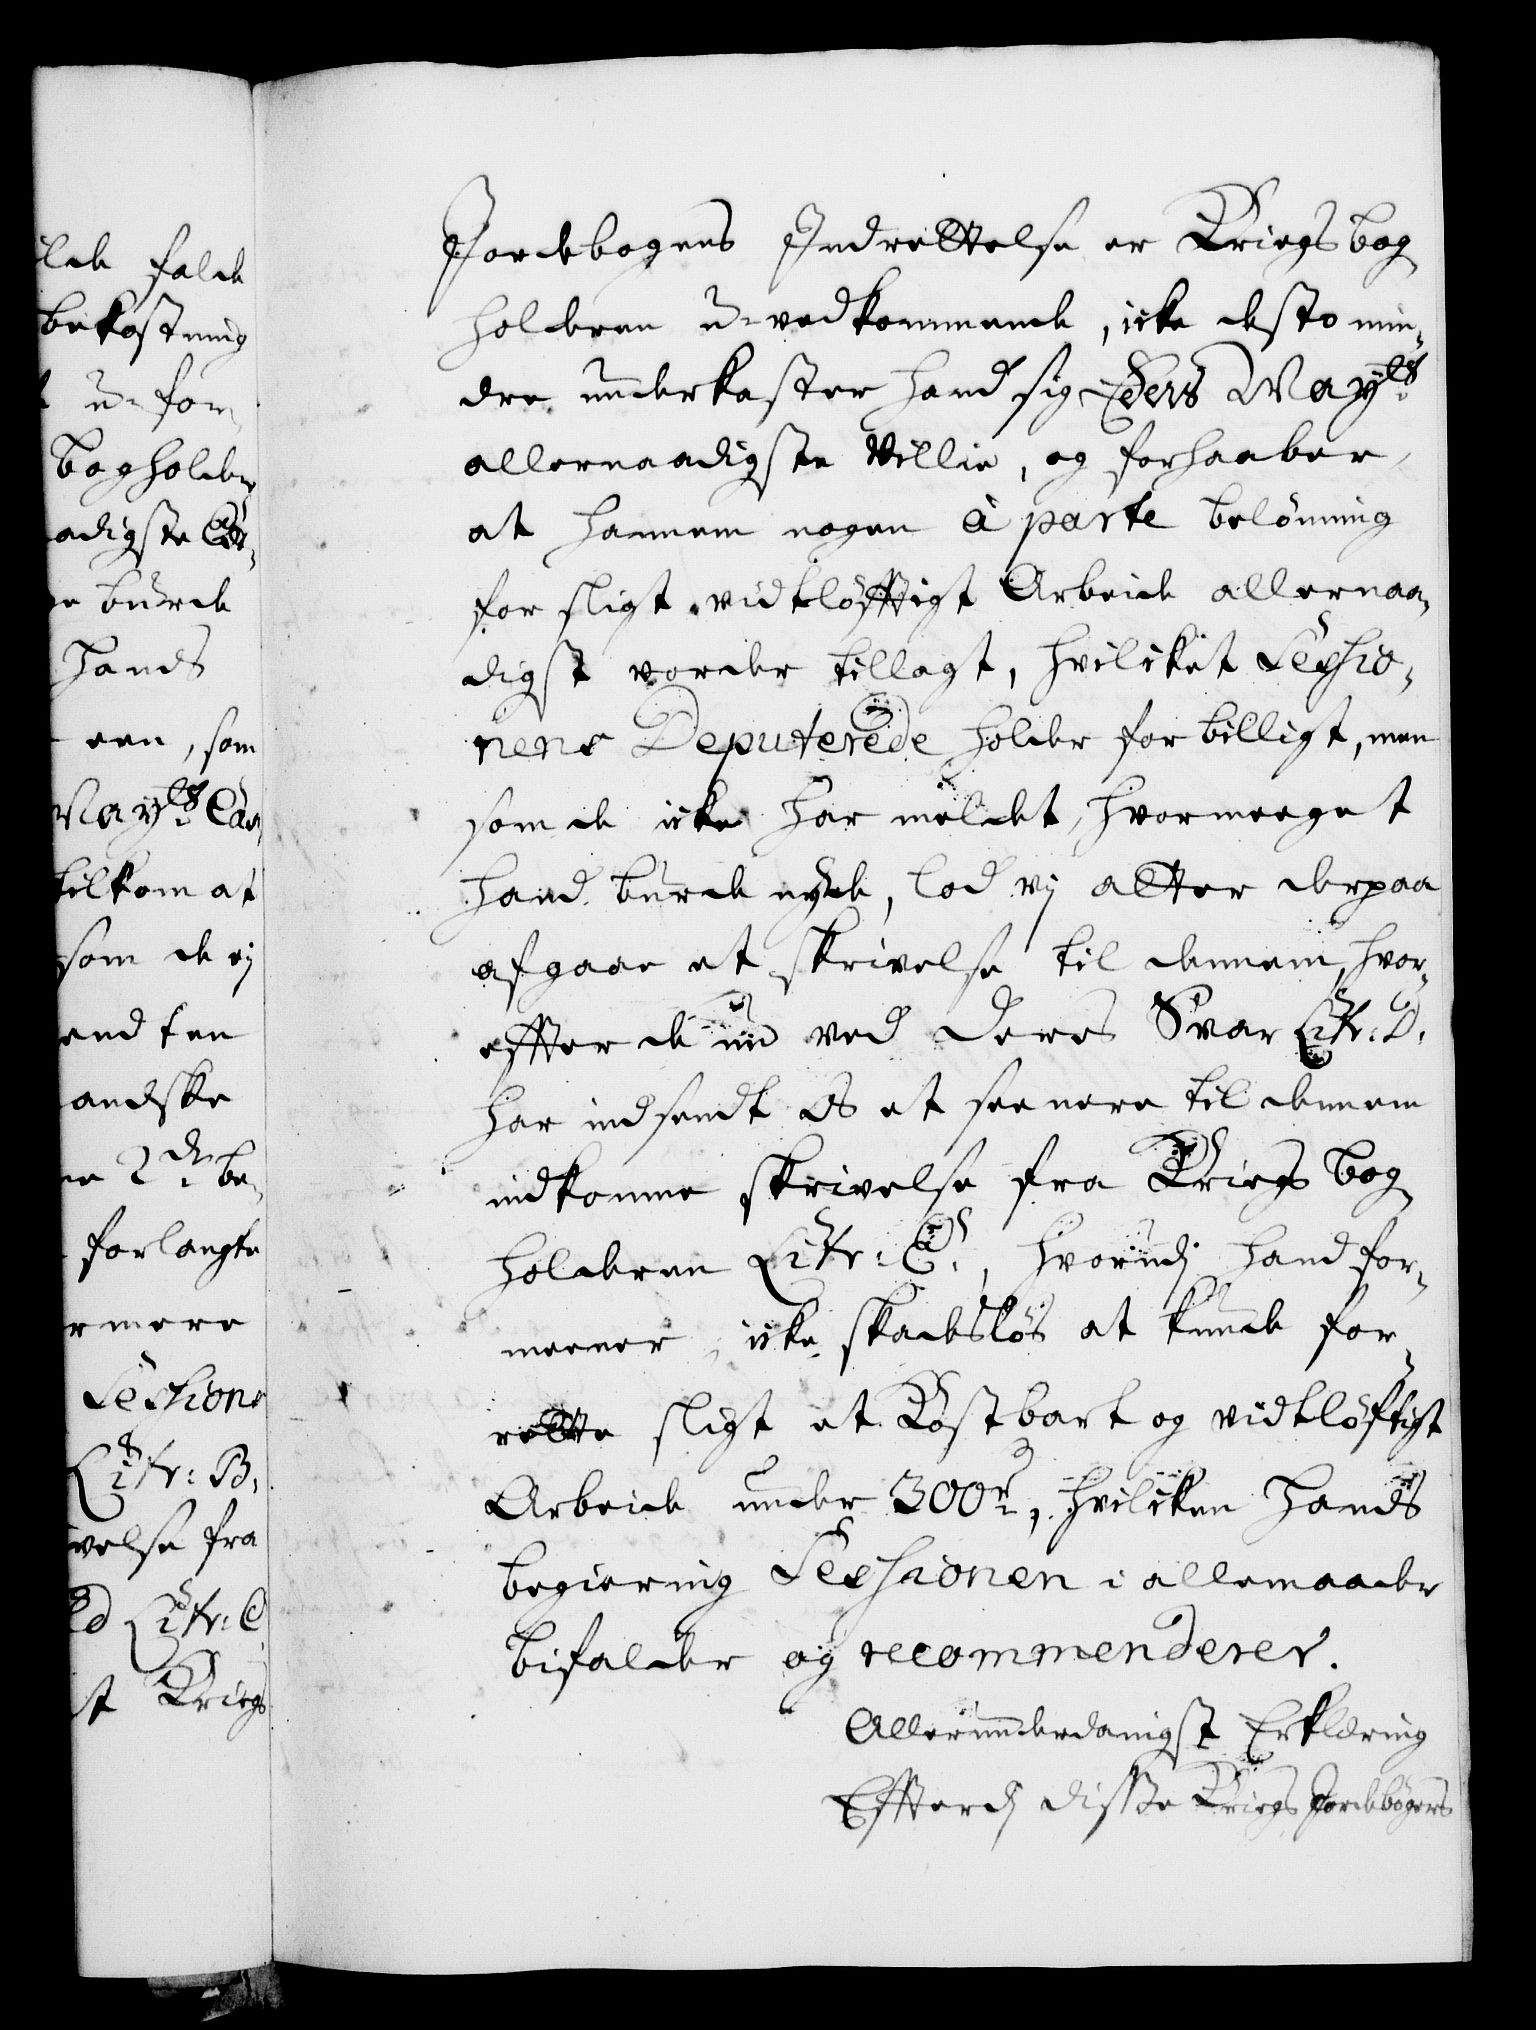 ilde falde
bekostning
t u-for,
bogholder
adigste Er-
e burde
hands
een, som
May:ts Cam,
tilkom at
som de ej
endten
andske
ne 2de: be,
forlangte
rmere
Sessions
Litr: B.
velse fra
Ed Litr: C.
et Kriegs
Jordebogens Indrettelse er Kriegsbog,
holderen u-vedkommende, icke desto min,
dre underkaster hand sig Eders May:ts
allernaadigste Villie, og forhaaber,
at hannem nogen à parte belønning
for sligt vidtløfftigt Arbeide allernaa,
digst vorder tillagt, hvilcket Sessio,
nens Deputerede holder for billigt, men
som de icke har meldet, hvormeeget
hand burde nyde, lod vj atter derpaa
afgaae et skrivelse til dennem, hvor,
effter de nu ved deres Svar Litr: D.
har indsendt Os et seenere til dennem
indkomne skrivelse fra Kriegs bog,
holderen Litr: E., hvorudj hand for,
meener, icke skadesløs at kunde for,
rette sligt et Kostbart og vidtløftigt
Arbeide under 300 rd:, hvilcken hands
begiering Sessionen i allemaader
bifalder og recommenderer.
Allerunderdanigst Erklæring
Efterdj disse Kriegs Jordebøgers